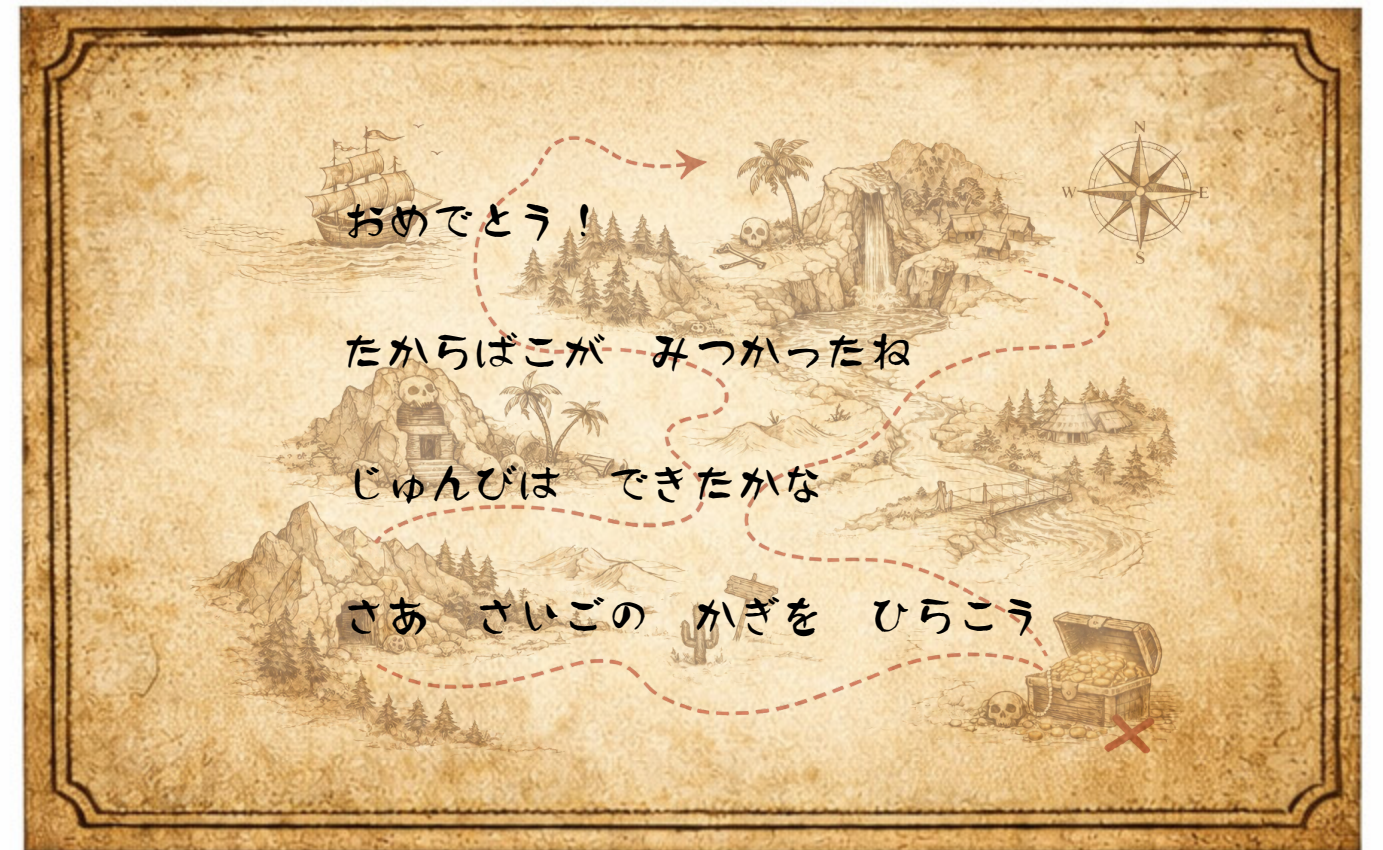 N
W E
S
おめでとう！
たからばこが　みつかったね
じゅんびは　できたかな
さあ　さいごの　かぎを　ひらこう